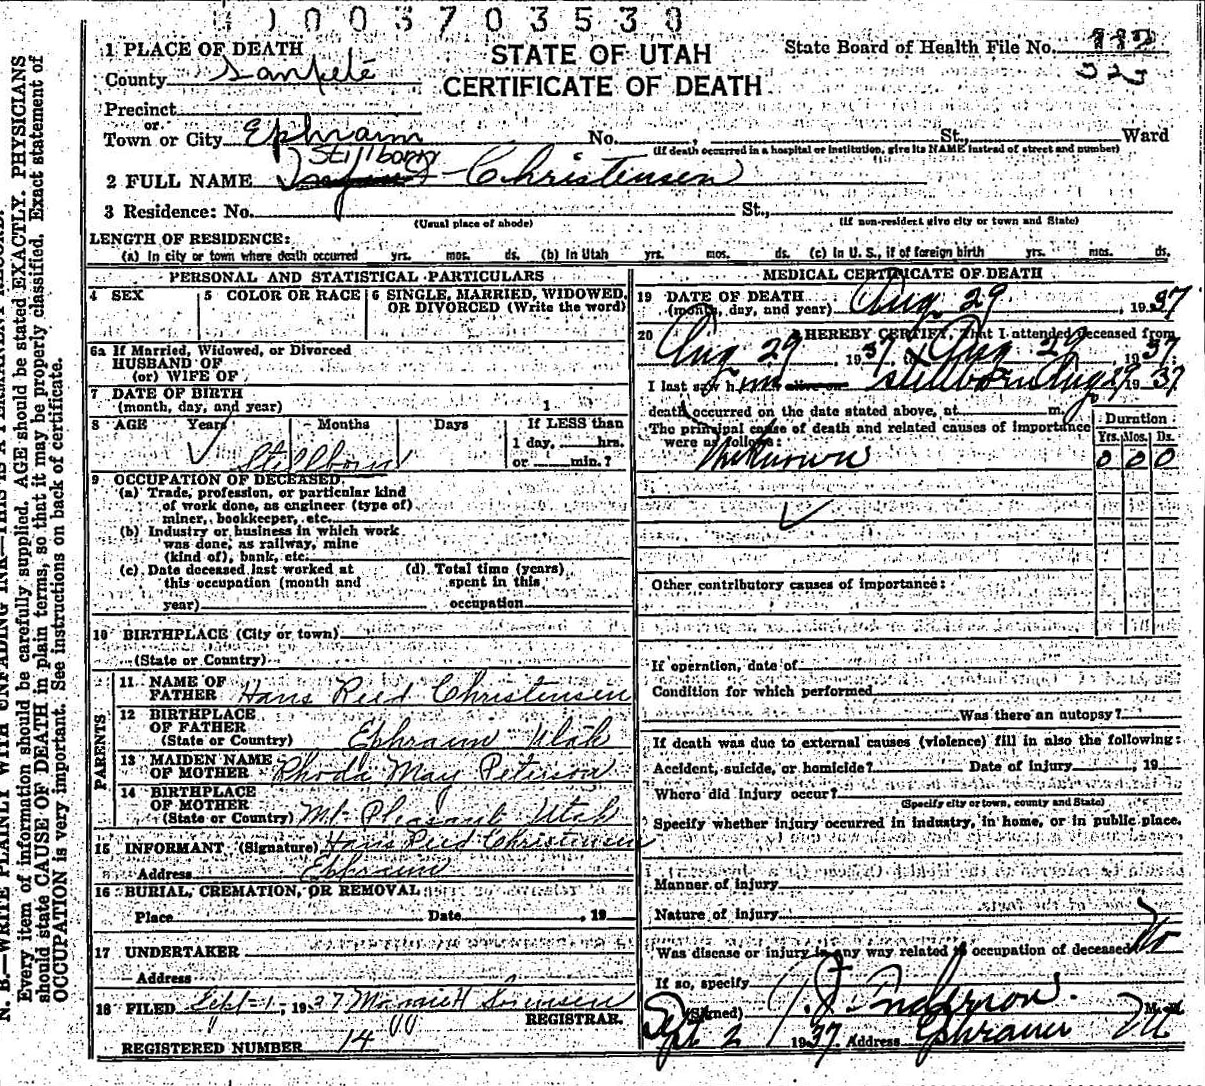 1003703530
1 PLACE OF DEATH
STATE OF UTAH
CERTIFICATE OF DEATH
State Board of Health File No. 882
323
County Sanpete
Precinct
or
Town or City Ephraim No. , St., Ward
(If death occurred in a hospital or institution, give its NAME instead of street and number)
Stillborn
2 FULL NAME Christensen
3 Residence: No. St.,
(Usual place of abode) (If non-resident give city or town and State)
LENGTH OF RESIDENCE:
(a) In city or town where death occurred yrs. mos. ds. (b) In Utah yrs. mos. ds. (c) In U. S., if of foreign birth yrs. mos. ds.
PERSONAL AND STATISTICAL PARTICULARS
4 SEX
5 COLOR OR RACE
6 SINGLE, MARRIED, WIDOWED, OR DIVORCED (Write the word)
6a If Married, Widowed, or Divorced
HUSBAND OF
(or) WIFE OF
7 DATE OF BIRTH
(month, day, and year) 1
8 AGE Years Months Days If LESS than
1 day, hrs.
or min.?
Stillborn
9 OCCUPATION OF DECEASED
(a) Trade, profession, or particular kind
of work done, as engineer (type of)
miner, bookkeeper, etc.
(b) Industry or business in which work
was done, as railway, mine
(kind of), bank, etc.
(c) Date deceased last worked at
this occupation (month and
year)
(d) Total time (years)
spent in this
occupation
10 BIRTHPLACE (City or town)
(State or Country)
PARENTS
11 NAME OF
FATHER Hans Reed Christensen
12 BIRTHPLACE
OF FATHER
(State or Country) Ephraim Utah
13 MAIDEN NAME
OF MOTHER Rhoda May Peterson
14 BIRTHPLACE
OF MOTHER
(State or Country) Mt. Pleasant Utah
15 INFORMANT (Signature) Hans Reed Christensen
Address Ephraim
16 BURIAL, CREMATION, OR REMOVAL
Place Date , 19
17 UNDERTAKER
Address
18 FILED Sept 1, 1937 H Sorensen
REGISTRAR.
REGISTERED NUMBER 14
MEDICAL CERTIFICATE OF DEATH
19 DATE OF DEATH
(month, day, and year) Aug 29, 1937
20 I HEREBY CERTIFY, That I attended deceased from
Aug 29, 1937 to Aug 29, 1937:
I last saw him alive on stillborn Aug 29 1937
death occurred on the date stated above, at m.
The principal cause of death and related causes of importance
were as follows:
Unknown
Duration
Yrs. Mos. Ds.
0 0 0
Other contributory causes of importance:
If operation, date of
Condition for which performed
Was there an autopsy?
If death was due to external causes (violence) fill in also the following:
Accident, suicide, or homicide? Date of injury , 19
Where did injury occur?
(Specify city or town, county and State)
Specify whether injury occurred in industry, in home, or in public place.
Manner of injury
Nature of injury
Was disease or injury in any way related to occupation of deceased No
If so, specify
(Signed) Anderson M. D.
Sept 2 1937 Address Ephraim
N. B.—WRITE PLAINLY WITH UNFADING INK—THIS IS A PERMANENT RECORD.
Every item of information should be carefully supplied. AGE should be stated EXACTLY. PHYSICIANS
should state CAUSE OF DEATH in plain terms, so that it may be properly classified. Exact statement of
OCCUPATION is very important. See instructions on back of certificate.